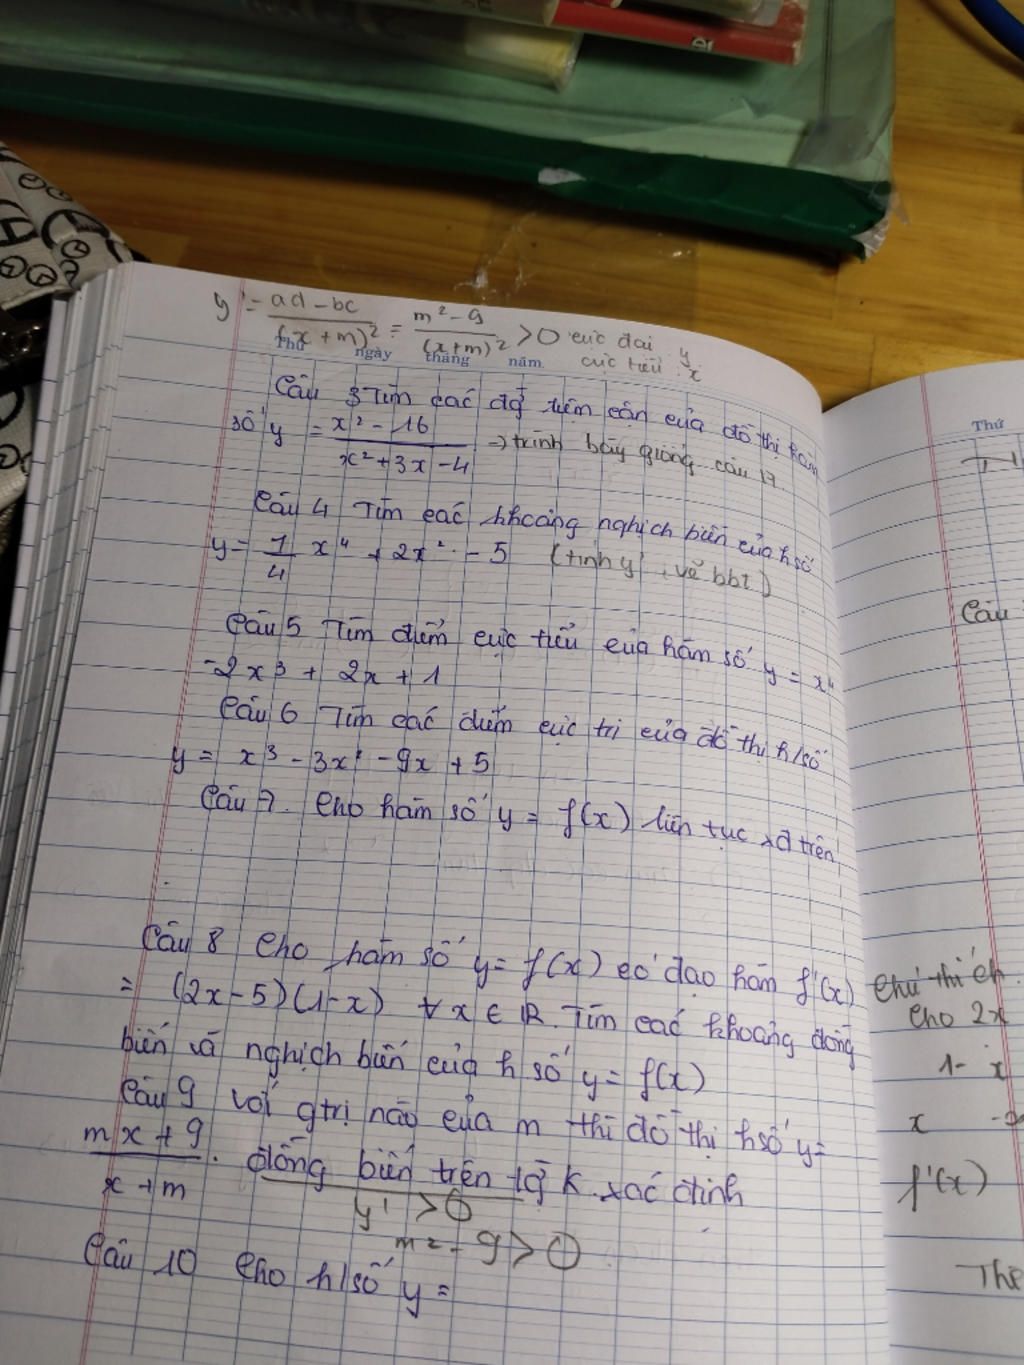 y' = ad - bc / (x + m)² = m² - 9 / (x+m)² > 0 cực đại y
cực tiểu x
Thứ ngày tháng năm
Câu 3 Tìm các đg tiệm cận của đồ thị hàm
số y = x² - 16 / x² + 3x - 4 → trình bày giống câu 17
Câu 4 Tìm các khoảng nghịch biến của h số
y = 1/4 x⁴ + 2x² - 5 (tính y', vẽ bbt)
Câu 5 Tìm điểm cực tiểu của hàm số y = x⁴
-2x³ + 2x + 1
Câu 6 Tìm các điểm cực trị của đồ thị h/số
y = x³ - 3x² - 9x + 5
Câu 7. Cho hàm số y = f(x) liên tục xđ trên
Câu 8 Cho hàm số y = f(x) có đạo hàm f'(x)
= (2x-5)(1-x) ∀ x ∈ R. Tìm các khoảng đồng
biến và nghịch biến của h số y = f(x)
Câu 9 Với gtrị nào của m thì đồ thị h số y =
mx + 9 / x + m . đồng biến trên tg k xác định
y' > 0
m² - 9 > 0
Câu 10 Cho h/số y =
Thứ
Câu
Chú thích
Cho 2x
1 - x
x
f'(x)
The